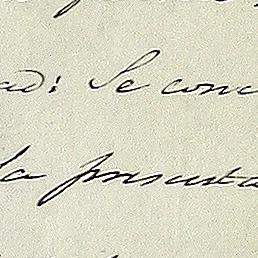 ad: Se conc
la presenta